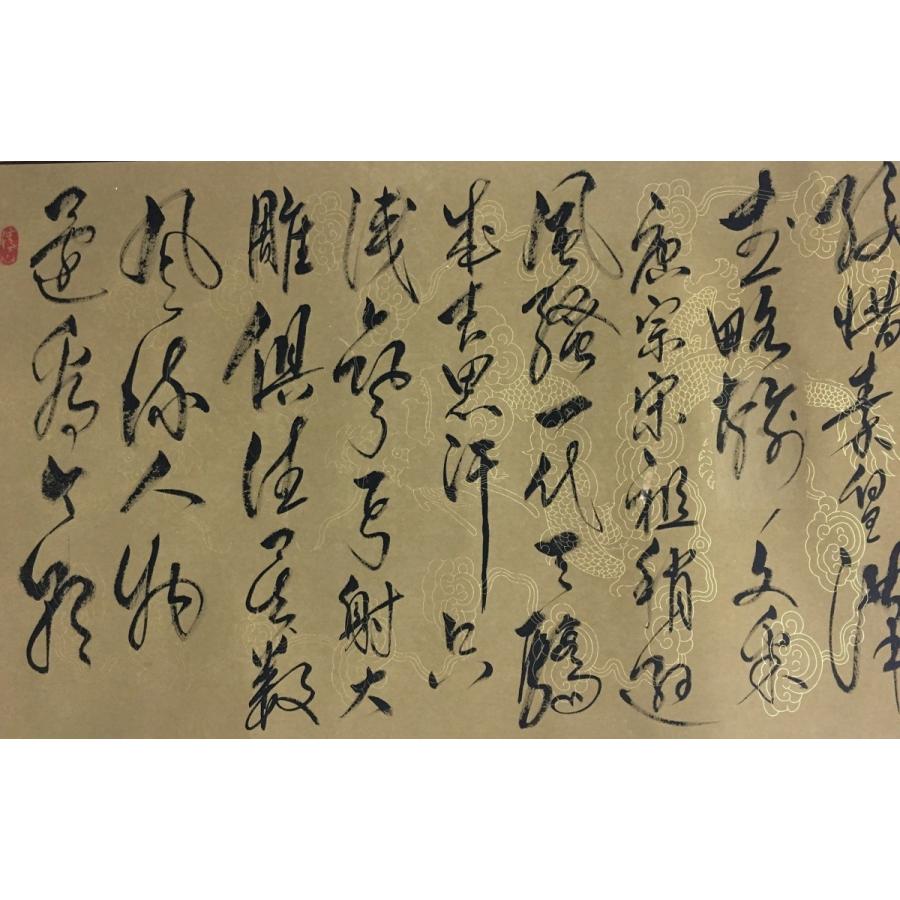 腰惜秦皇漢
武略輸文采
唐宗宋祖稍遜
風騷一代天驕
成吉思汗只
識彎弓射大
雕俱往矣數
风流人物
還看今朝